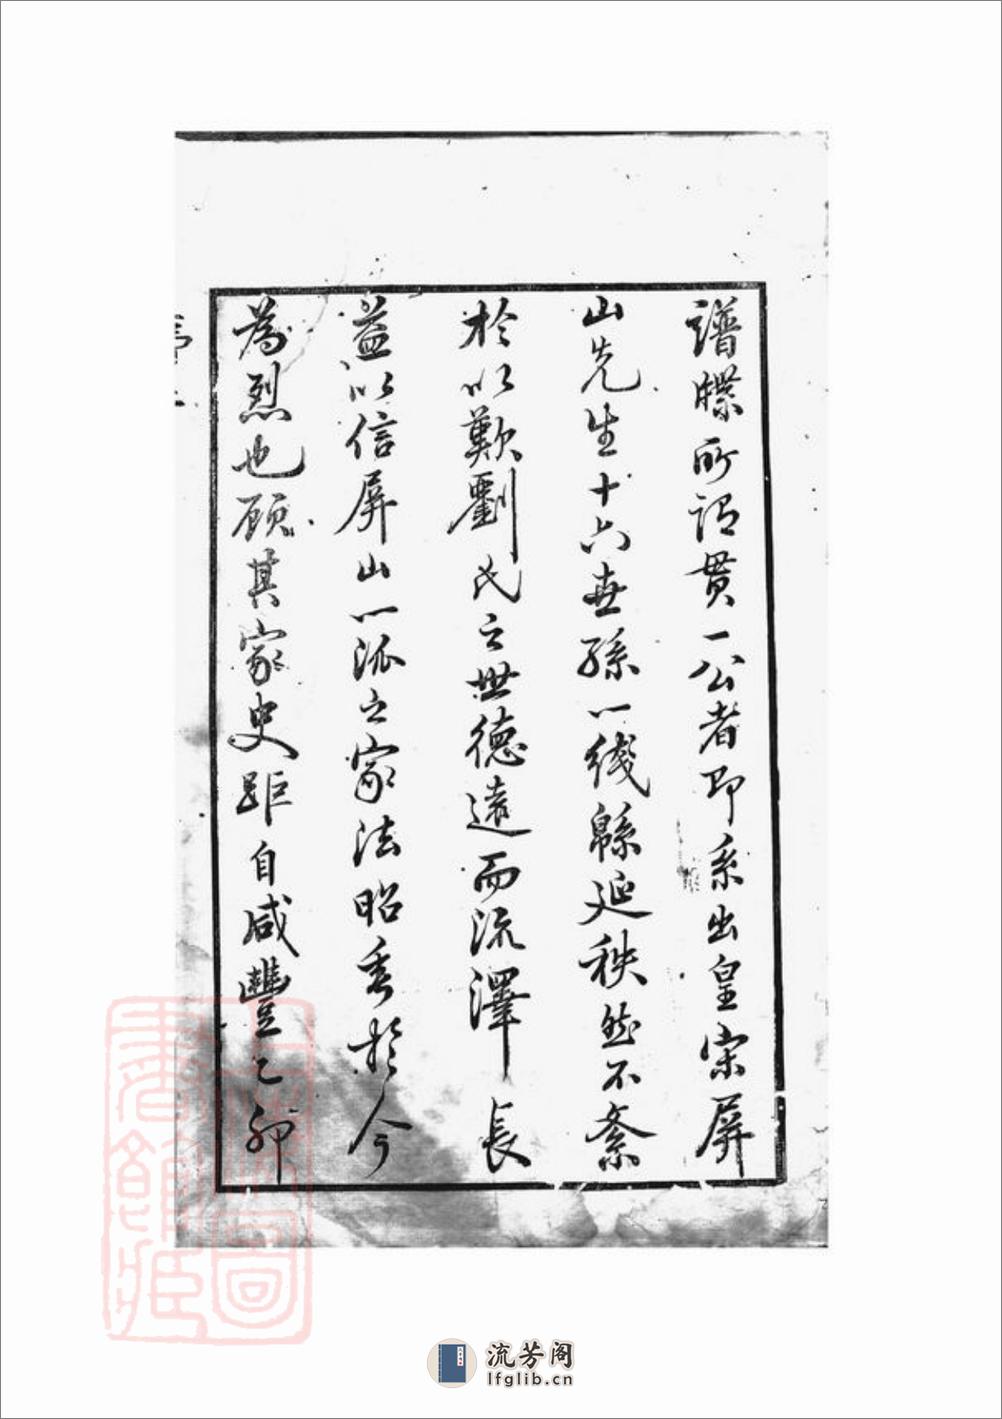 譜牒所谓貫一公者即系出皇宗屏
山先生十六世孫一綫緜延秩然不紊
於以歎劉氏之世德遠而流澤長
益以信屏山一派之家法昭垂於今
為烈也顾其家史距自咸豐乙卯
序
上海圖
書館藏
流芳阁
lfglib.cn